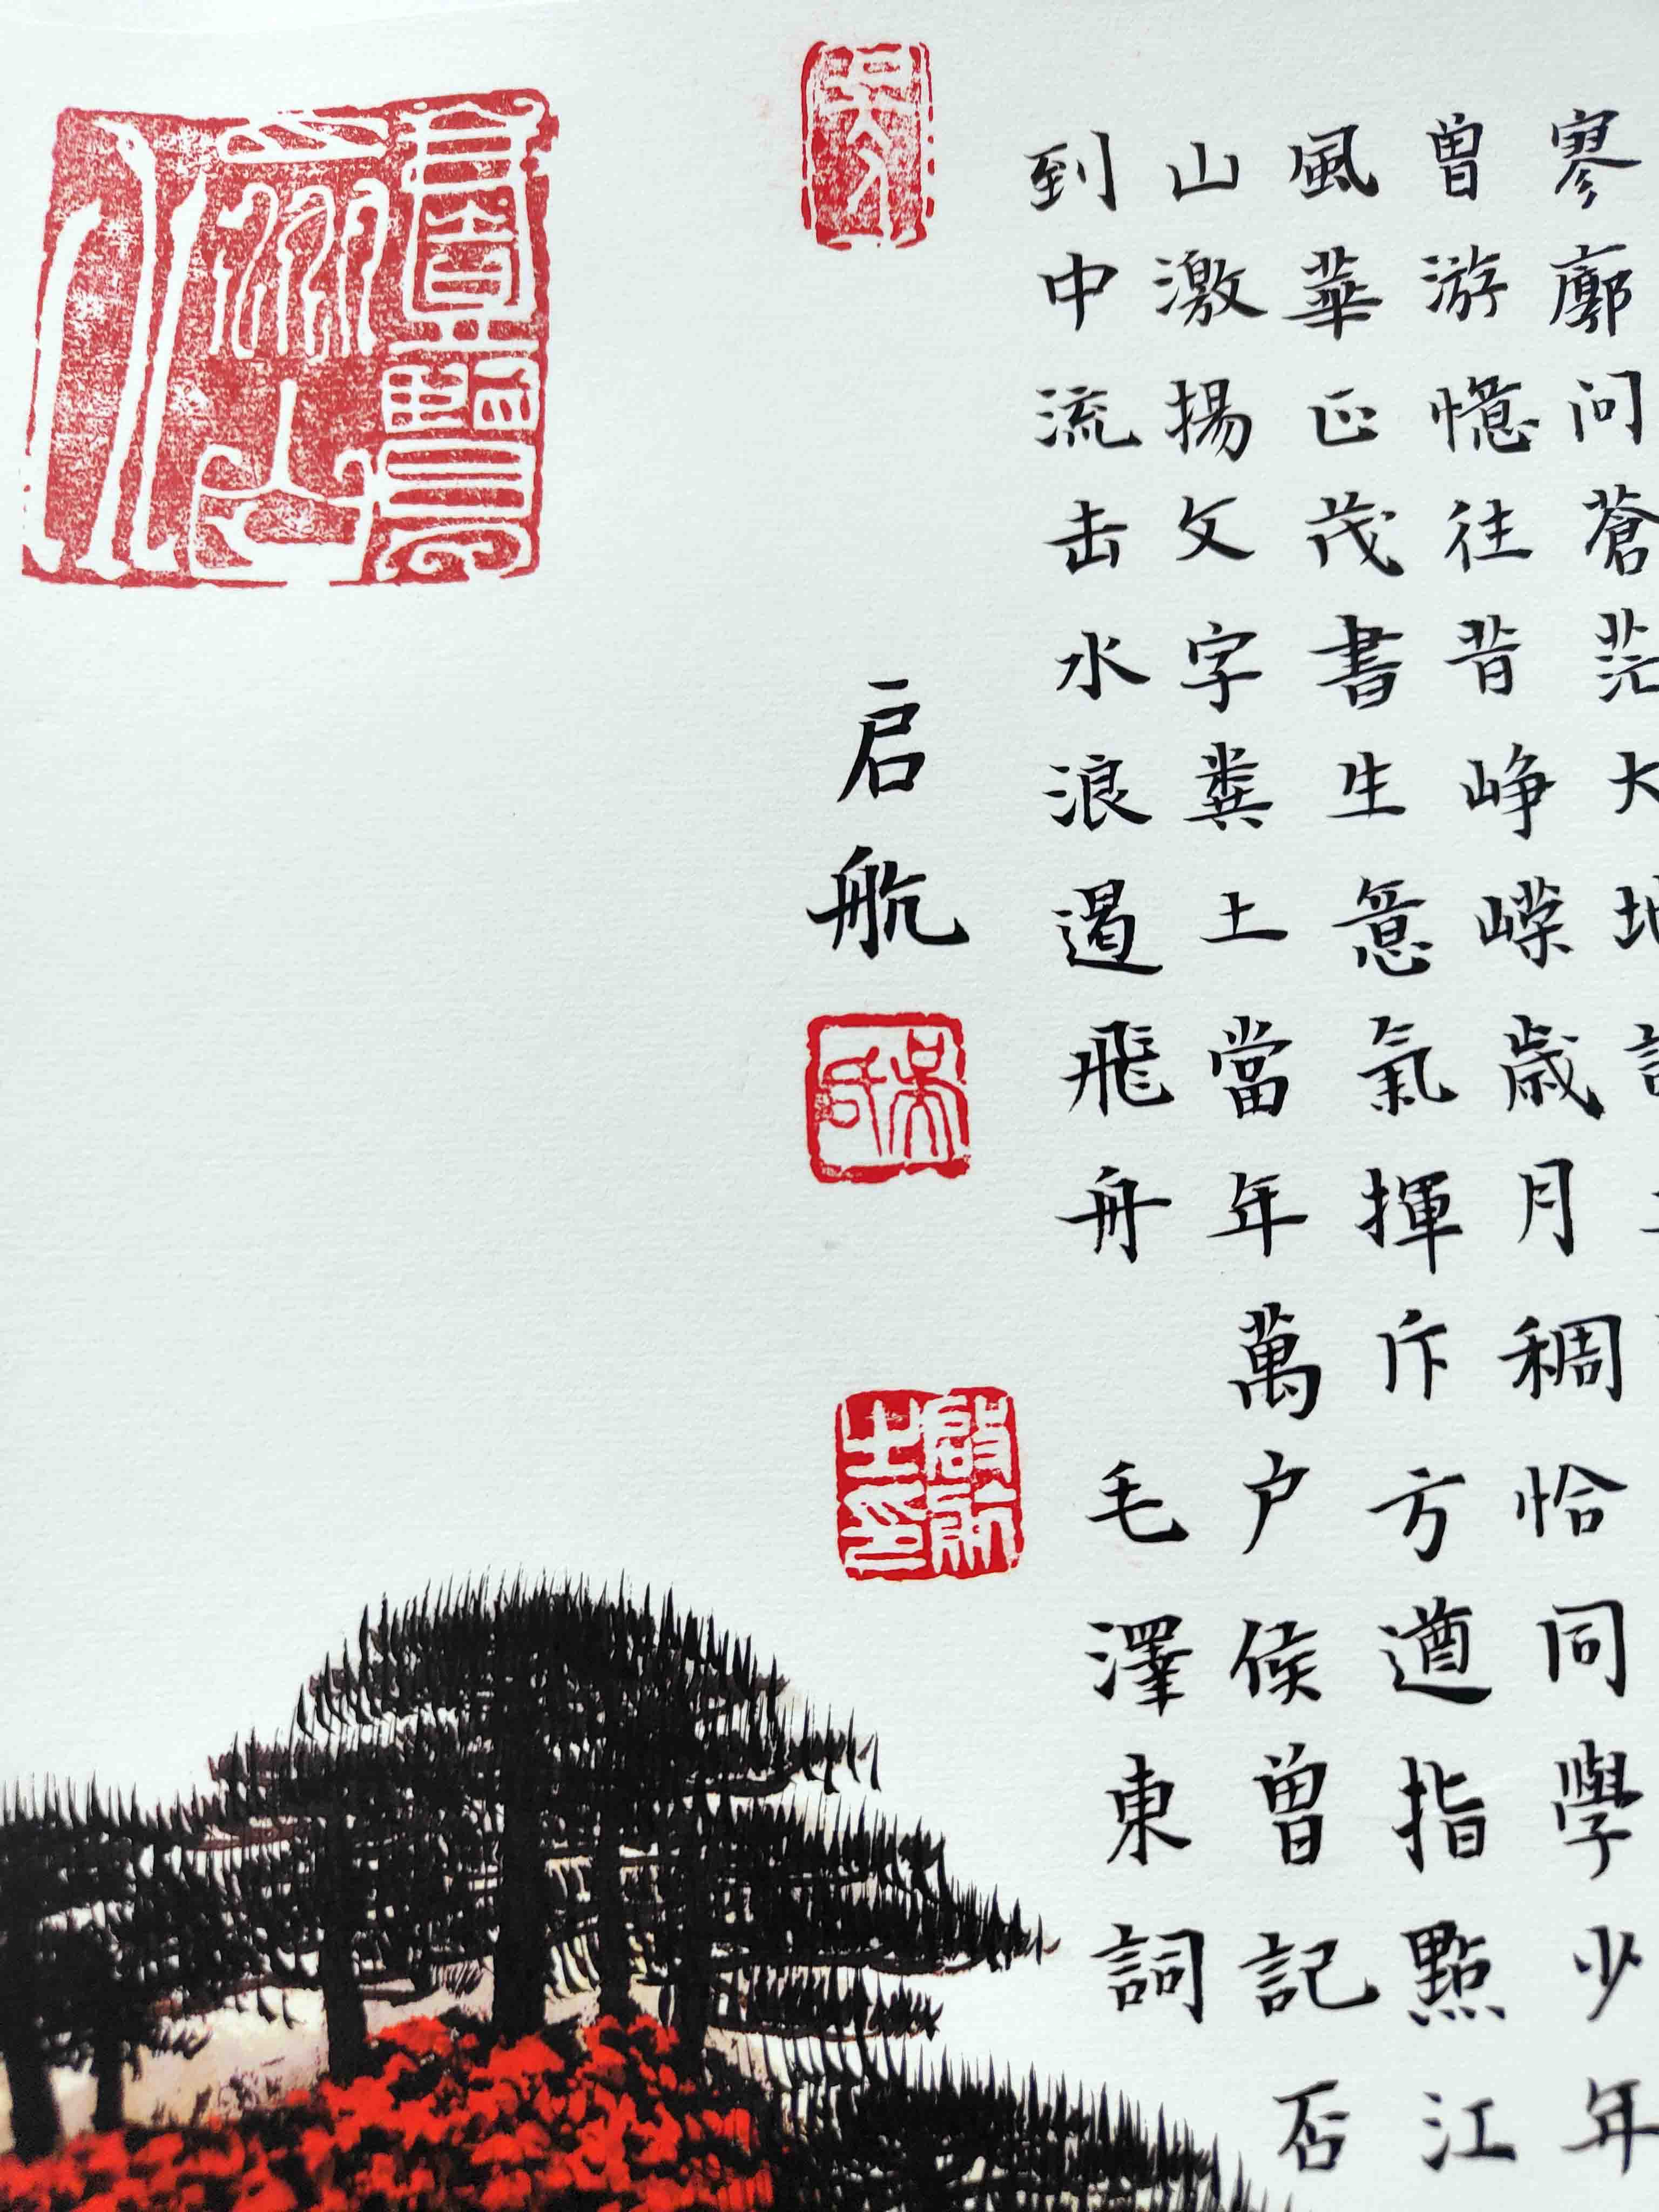 寥廓问蒼茫大地
曾游憶往昔峥嶸歲月稠恰同學少年
風華正茂書生意氣揮斥方遒指點江
山激揚文字糞土當年萬户侯曾記否
到中流击水浪遏飛舟
毛澤東詞
启航
吴氏
啟航之印